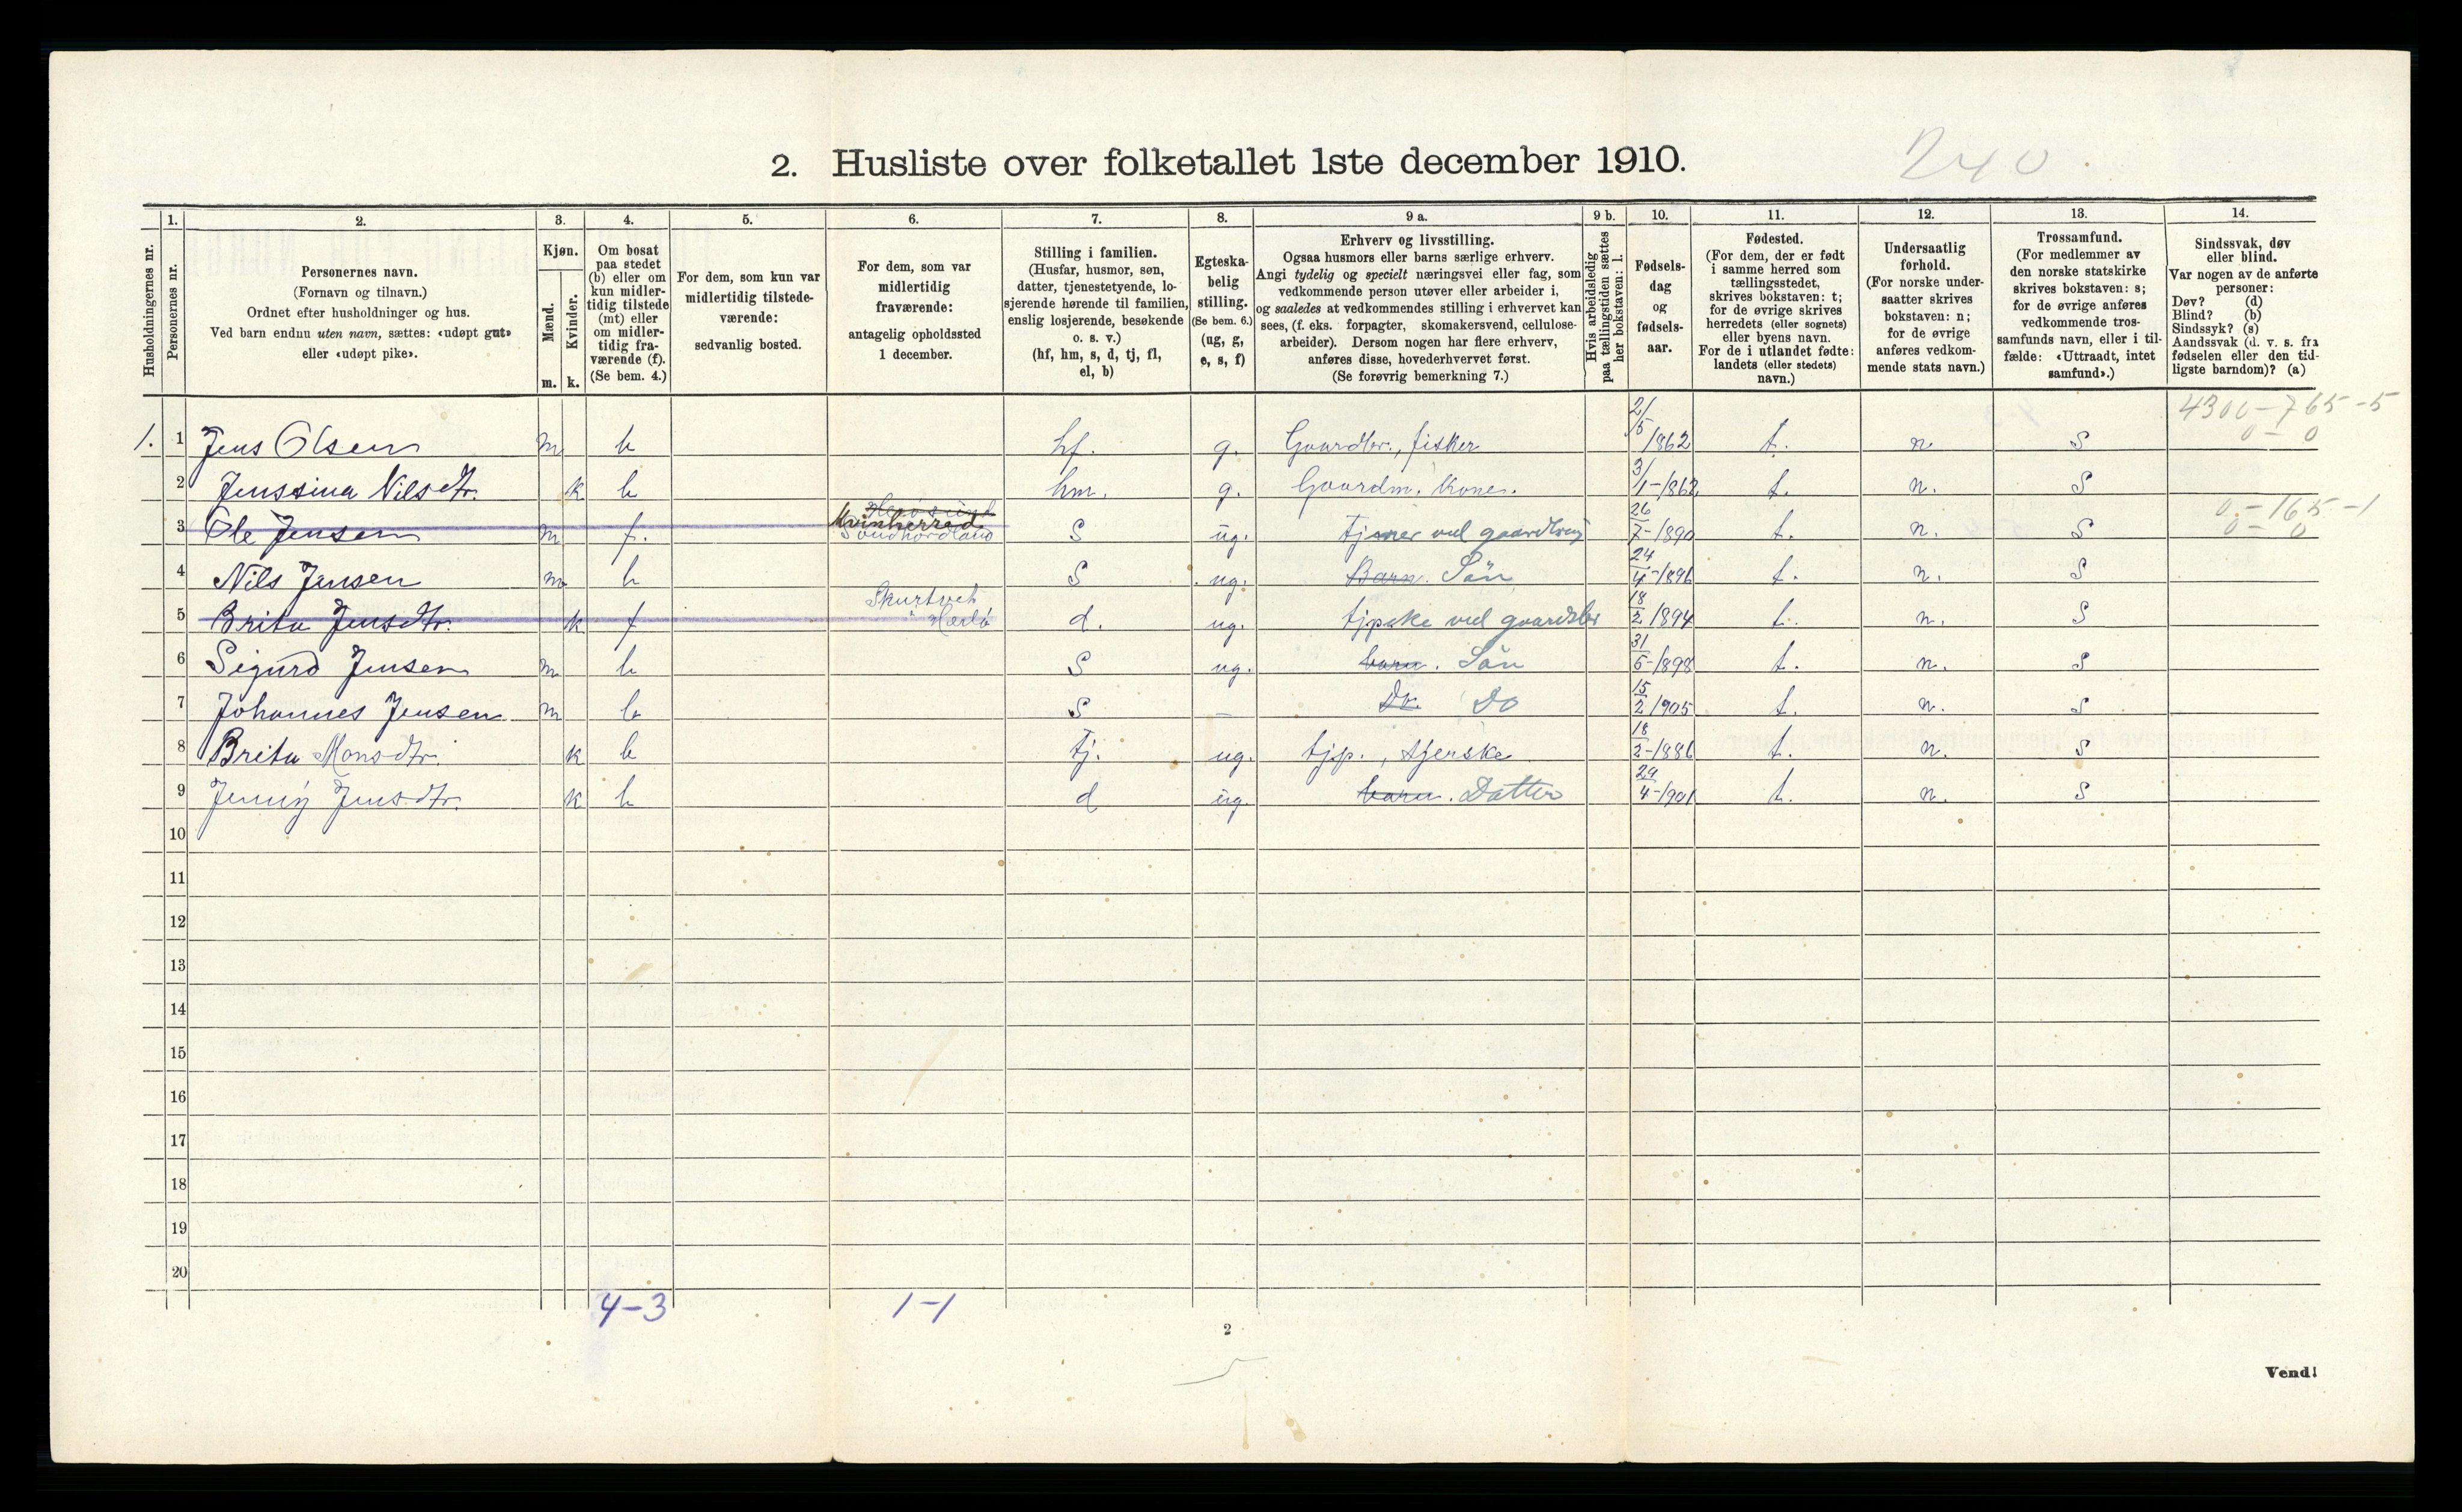 240
2. Husliste over folketallet 1ste december 1910.
Husholdningernes nr.
1.
Personernes nr.
2.
Personernes navn.
(Fornavn og tilnavn.)
Ordnet efter husholdninger og hus.
Ved barn endnu uten navn, sættes: «udøpt gut»
eller «udøpt pike».
3.
Kjøn.
Mænd.
Kvinder.
m. k.
4.
Om bosat
paa stedet
(b) eller om
kun midler-
tidig tilstede
(mt) eller
om midler-
tidig fra-
værende (f).
(Se bem. 4.)
5.
For dem, som kun var
midlertidig tilstede-
værende:
sedvanlig bosted.
6.
For dem, som var
midlertidig
fraværende:
antagelig opholdssted
1 december.
7.
Stilling i familien.
(Husfar, husmor, søn,
datter, tjenestetyende, lo-
sjerende hørende til familien,
enslig losjerende, besøkende
o. s. v.)
(hf, hm, s, d, tj, fl,
el, b)
8.
Egteska-
belig
stilling.
(Se bem. 6.)
(ug, g,
e, s, f)
9 a.
Erhverv og livsstilling.
Ogsaa husmors eller barns særlige erhverv.
Angi tydelig og specielt næringsvei eller fag, som
vedkommende person utøver eller arbeider i,
og saaledes at vedkommendes stilling i erhvervet kan
sees, (f. eks. forpagter, skomakersvend, cellulose-
arbeider). Dersom nogen har flere erhverv,
anføres disse, hovederhvervet først.
(Se forøvrig bemerkning 7.)
9 b.
Hvis arbeidsledig
paa tællingstiden sættes
her bokstaven: l.
10.
Fødsels-
dag
og
fødsels-
aar.
11.
Fødested.
(For dem, der er født
i samme herred som
tællingsstedet,
skrives bokstaven: t;
for de øvrige skrives
herredets (eller sognets)
eller byens navn.
For de i utlandet fødte:
landets (eller stedets)
navn.)
12.
Undersaatlig
forhold.
(For norske under-
saatter skrives
bokstaven: n;
for de øvrige
anføres vedkom-
mende stats navn.)
13.
Trossamfund.
(For medlemmer av
den norske statskirke
skrives bokstaven: s;
for de øvrige anføres
vedkommende tros-
samfunds navn, eller i til-
fælde: «Uttraadt, intet
samfund».)
14.
Sindssvak, døv
eller blind.
Var nogen av de anførte
personer:
Døv? (d)
Blind? (b)
Sindssyk? (s)
Aandssvak (d. v. s. fra
fødselen eller den tid-
ligste barndom)? (a)
4300-765-5
0-0
1. 1 Jens Olsen m b hf. g. Gaardbr., fisker 2/5 1862 t. n S
2 Jenssina Nilsdtr. k b hm. g. Gaardm. kone. 3/1-1862 t. n. S
0-165-1
0-0
3 Ole Jensen m f. Kvinherred Søndhordland S ug. tjener ved gaardbrug 26/7-1890 t. n. S
4 Nils Jensen m b S ug. Barn. Sön 24/4-1896 t. n. S
5 Brita Jensdtr. k f Herlö d. ug. 18/2 1894 t. n. S
6 Sigurd Jensen m b S ug. barn. Sön 31/5-1898 t. n. S
7 Johannes Jensen m b S - Do. Do 15/2 1905 t. n. S
8 Brita Monsdtr. k b tj. ug. tjp. 18/2-1886 t. n. S
9 Jenny Jensdtr. k b d ug. barn. Datter 29/4-1901 t. n. S
10
11
12
13
14
15
16
17
18
19
20
4-3 1-1
2
Vend!